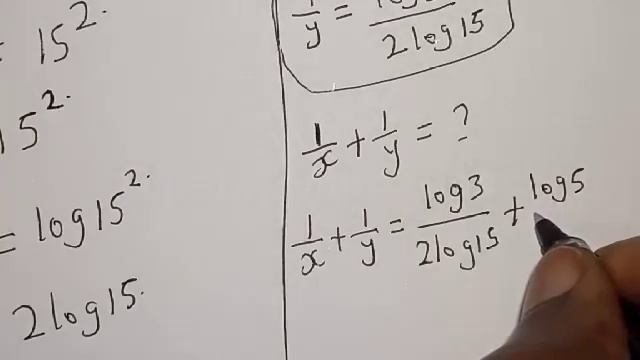 = 15².
15².
= log15².
2log15.
1/y = log / 2log15
1/x + 1/y = ?
1/x + 1/y = log3/2log15 + log5